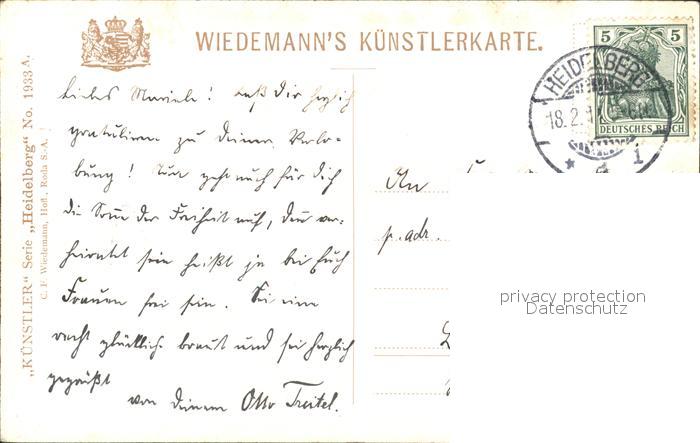 WIEDEMANN'S KÜNSTLERKARTE.
„KÜNSTLER" Serie „Heidelberg" No. 1933 A.
C. F. Wiedemann, Hofl., Roda S.-A.
Liebes Mariele! Laß Dir herzlich
gratulieren zu Deiner Verlo-
bung! Nun geht auch für Dich
die Sonne der Freiheit auf, denn ver-
heiratet sein heißt ja bei Euch
Frauen frei sein. Sei eine
recht glückliche Braut und sei herzlich
gegrüßt
von Deinem Otto Treitel.
5 5
DEUTSCHES REICH
HEIDELBERG
18.2.
* 1
An
p. adr.
privacy protection
Datenschutz